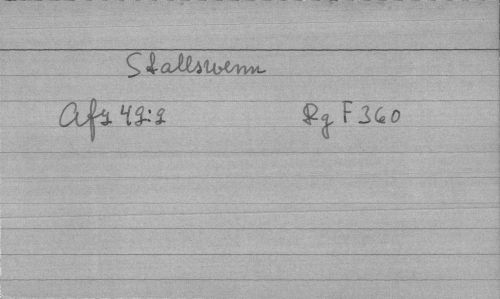 Stallswenn
Afz 49:2 Rg F 360